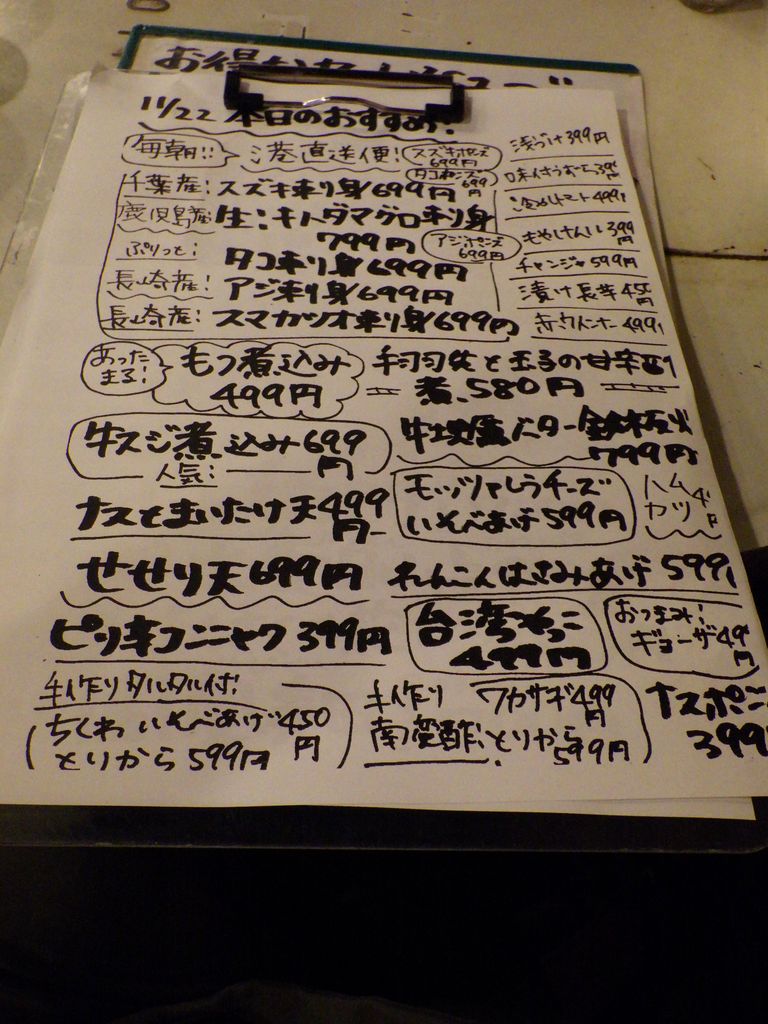 11/22 本日のおすすめ!
毎朝!! 港直送便! スズキポンズ 699円
タコポンズ 699円
千葉産! スズキ刺り身 699円
鹿児島産 生!キハダマグロ刺り身
799円 アジポンズ 699円
ぷりっと! タコ刺り身 699円
長崎産! アジ刺り身 699円
長崎産! スマガツオ刺り身 699円
浅づけ 399円
冷めしトマト 499
もやしナムル 399円
チャンジャ 599円
漬け長芋 450円
赤ウインナー 499
あったまる! もつ煮込み
499円
と玉子の甘辛
煮 580円
牛スジ煮込み 699円
人気!
バター鉄板
799円
ナスとまいたけ天 499円
モッツァレラチーズ
いそべあげ 599円
ハム
カツ
せせり天 699円
れんこんはさみあげ 599
ピリ辛コンニャク 399円
台湾やっこ
499円
おつまみ!
ギョーザ 49
円
手作りタルタル付!
ちくわいそべあげ 450円
とりから 599円
手作り
南蛮酢!
ワカサギ 499円
とりから 599円
ナスポン
399